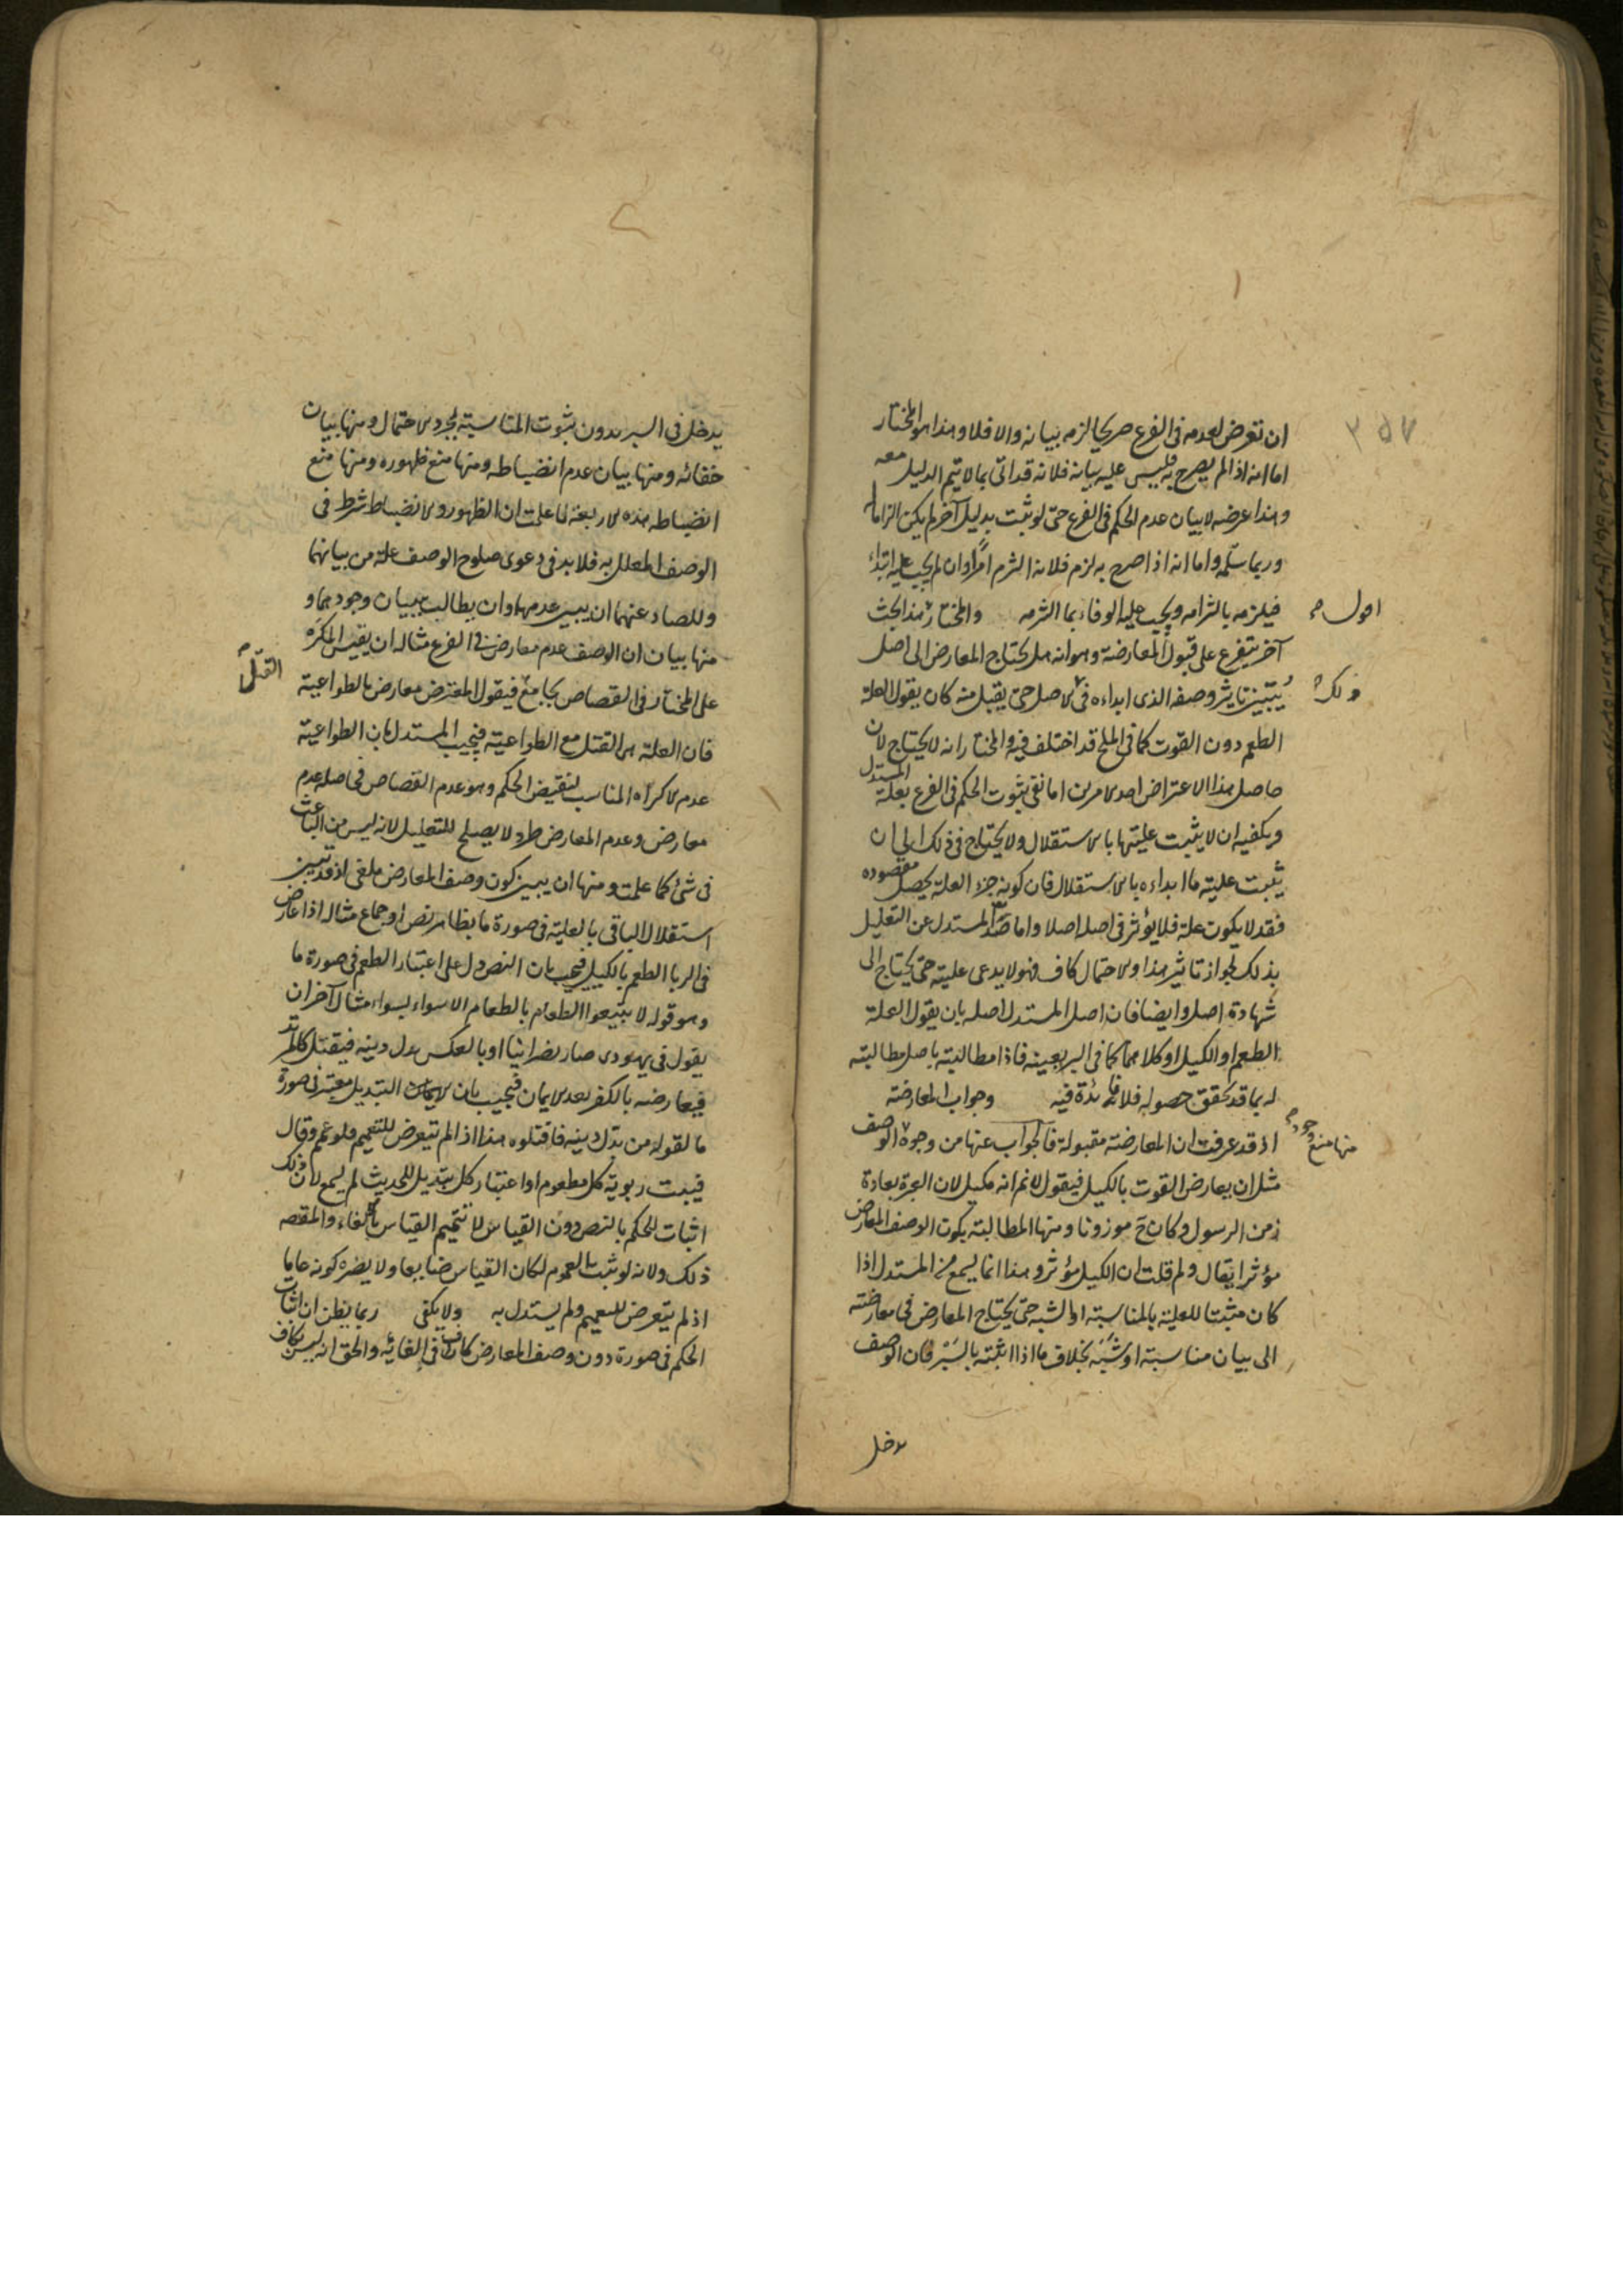 ٢٥٧
ان تعرض لعدمه فى الفرع صريحا لزمه بيانه والا فلا وهذا هو المختار
اما انه اذا لم يصرح به فليس عليه بيانه فلانه قد اتى بما لا يتم الدليل معه
وهذا غرضه لا بيان عدم الحكم فى الفرع حتى لو ثبت بدليل آخر لم يكن الزاما له
وربما سلمه واما انه اذا صرح به لزم فلانه التزم امرا وان لم يجب عليه ابتداء
فيلزمه بالتزامه ويجب عليه الوفاء بما التزمه والمختار هذا بحث
اقول
آخر يتفرع على قبول المعارضة وهو انه هل يحتاج المعارض الى اصل
يتبين تاثير وصفه الذى ابداءه فى الاصل حتى يقبل منه كان يقول العلة
ذلك
الطعم دون القوت كما فى الملح قد اختلف فيه والمختار انه لا يحتاج لان
حاصل هذا الاعتراض احد الامرين اما نفى ثبوت الحكم فى الفرع بعلة المستدل
ويكفيه ان لا يثبت عليتها بالاستقلال ولا يحتاج فى ذلك الى ان
يثبت علية ما ابداءه بالاستقلال فان كونه جزء العلة يحصل مقصوده
فقد لا يكون علة فلا يؤثر فى اصل اصلا واما صد المستدل عن التعليل
بذلك لجواز تاثير هذا والاحتمال كاف فهو لا يدعى عليته حتى يحتاج الى
شهادة اصل وايضا فان اصل المستدل اصله بان يقول العلة
الطعم او الكيل او كلاهما كما فى البر بعينه فاذا مطالبته باصل مطالبته
له بما قد تحقق حصوله فلا فائدة فيه وجواب المعارضة
اذ قد عرفت ان المعارضة مقبولة فالجواب عنها من وجوه الوصف
منها منع وجود
مثل ان يعارض القوت بالكيل فيقول لا نم انه مكيل لان العبرة بعادة
زمن الرسول وكان ح موزونا ومنها المطالبة بكون الوصف المعارض
مؤثرا يقال ولم قلت ان الكيل مؤثر وهذا انما يسمع من المستدل اذا
كان مثبتا للعلية بالمناسبة او الشبه حتى يحتاج المعارض فى معارضته
الى بيان مناسبة او شبه بخلاف ما اذا اثبته بالسبر فان الوصف
يدخل
يدخل فى السبر بدون ثبوت المناسبة لمجرد الاحتمال ومنها بيان
خفائه ومنها بيان عدم انضباطه ومنها منع ظهوره ومنها منع
انضباطه هذه الاربعة لما علمت ان الظهور والانضباط شرط فى
الوصف المعلل به فلا بد فى دعوى صلوح الوصف علة من بيانهما
وللصاد عنهما ان يبين عدمهما وان يطالب ببيان وجودهما و
منها بيان ان الوصف عدم معارض فى الفرع مثاله ان يقيس المكره
على المختار فى القصاص بجامع فيقول المعترض معارض بالطواعية
القتل
فان العلة هى القتل مع الطواعية فيجيب المستدل بان الطواعية
عدم الاكراه المناسب لنقيض الحكم وهو عدم القصاص فحاصله عدم
معارض وعدم المعارض طرد لا يصلح للتعليل لانه ليس من الباعث
فى شئ كما علمت ومنها ان يبين كون وصف المعارض ملغى اذ قد تبين
استقلال الباقى بالعلية فى صورة ما بظاهر نص او اجماع مثاله اذا عارض
فى الربا الطعم بالكيل فيجيب بان النص دل على اعتبار الطعم فى صورة ما
وهو قوله لا تبيعوا الطعام بالطعام الا سواء بسواء مثال آخر ان
يقول فى يهودى صار نصرانيا او بالعكس بدل دينه فيقتل كالمرتد
فيعارضه بالكفر بعد الايمان فيجيب بان التبديل معتبر فى صورة
ما لقوله من بدل دينه فاقتلوه هذا اذا لم يتعرض للتعميم فلو عم وقال
فيثبت ربوية كل مطعوم او اعتبار كل تبديل للحديث لم يسمع لان ذلك
اثبات الحكم بالنص دون القياس لا تتميم القياس بالالغاء والمقصه
ذلك ولانه لو ثبت العموم لكان القياس ضايعا ولا يضره كونه عاما
اذ لم يتعرض للتعميم ولم يستدل به ولا يكفى ربما يظن ان اثبات
الحكم فى صورة دون وصف المعارض كاف فى الغائه والحق انه ليس بكاف